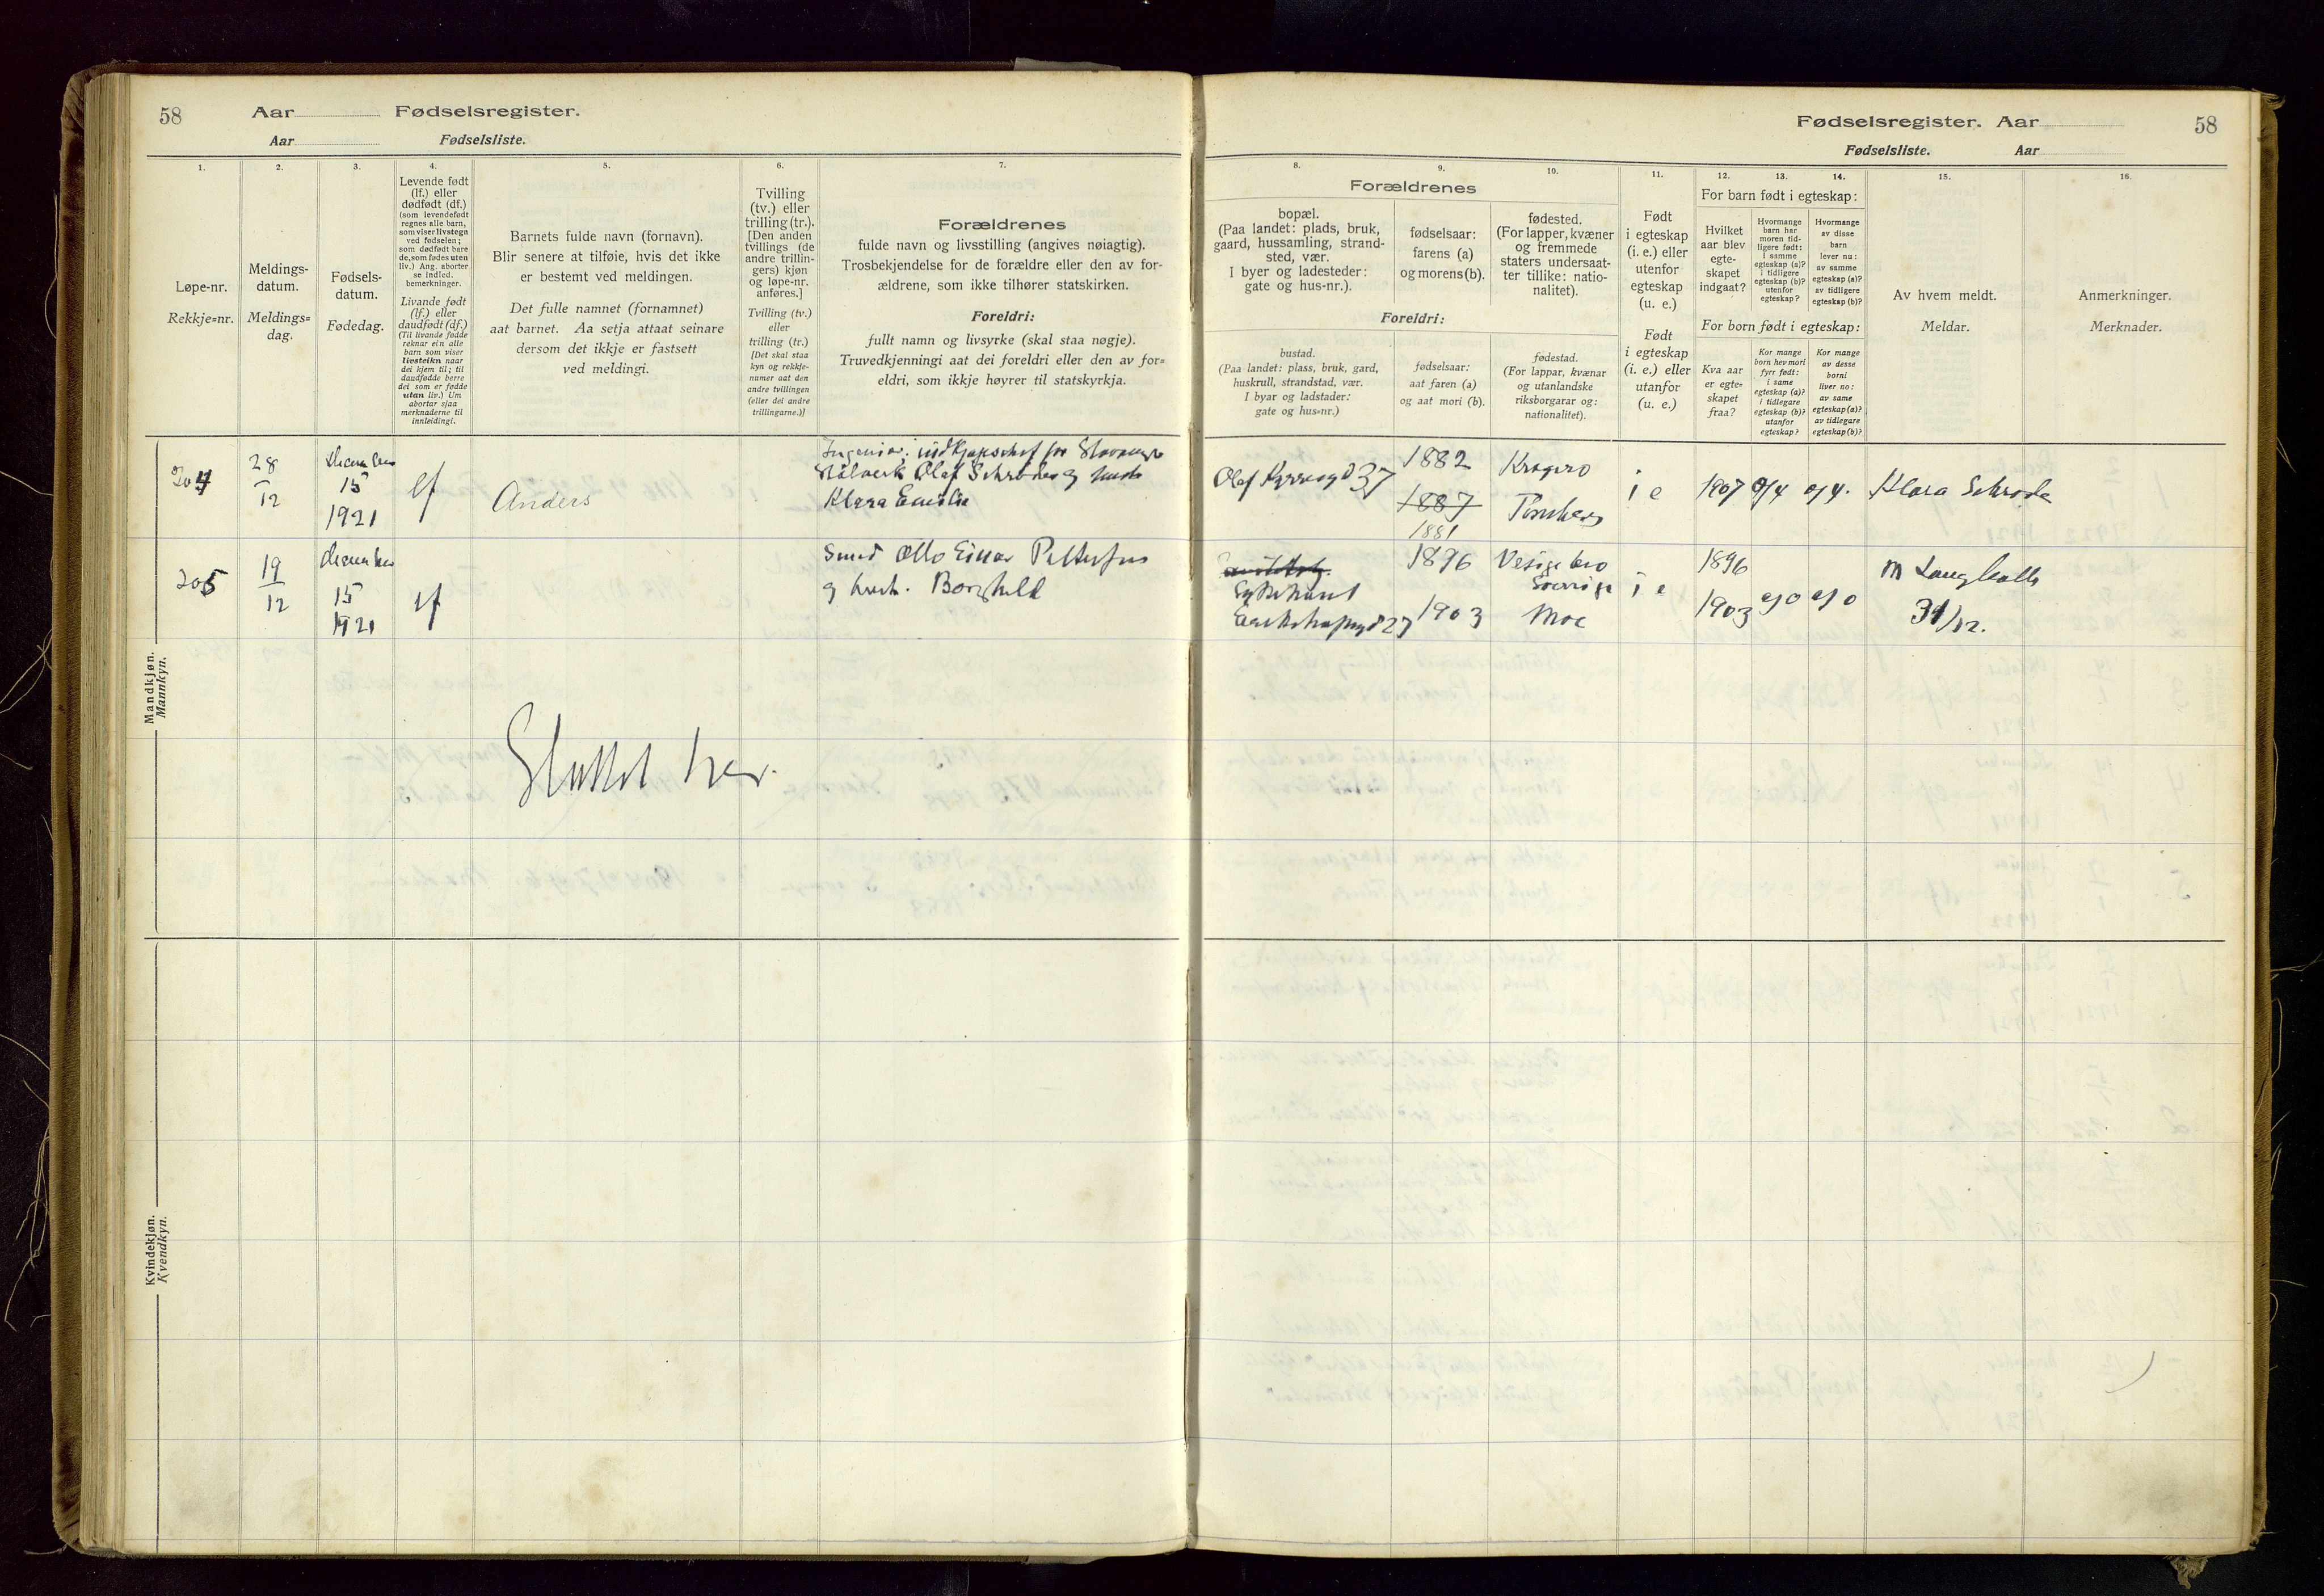 58
Aar
Fødselsregister.
Aar
Fødselsliste.
1.
Løpe-nr.
Rekkje=nr.
2.
Meldings-
datum.
Meldings=
dag.
3.
Fødsels-
datum.
Fødedag.
4.
Levende født
(lf.) eller
dødfødt (df.)
(som levendefødt
regnes alle barn,
som viser livstegn
ved fødselen;
som dødfødt bare
de, som fødes uten
liv.) Ang. aborter
se indled.
bemerkninger.
Livande født
(lf.) eller
daudfødt (df.)
(Til livande fødde
reknar ein alle
barn som viser
livsteikn naar
dei kjem til; til
daudfødde berre
dei som er fødde
utan liv.) Um
abortar sjaa
merknaderne til
innleidingi.
5.
Barnets fulde navn (fornavn).
Blir senere at tilføie, hvis det ikke
er bestemt ved meldingen.
Det fulle namnet (fornamnet)
aat barnet. Aa setja attaat seinare
dersom det ikkje er fastsett
ved meldingi.
6.
Tvilling
(tv.) eller
trilling (tr.).
[Den anden
tvillings (de
andre trillin-
gers) kjøn
og løpe-nr.
anføres.]
Tvilling (tv.)
eller
trilling (tr.)
[Det skal staa
kyn og rekkje-
numer aat den
andre tvillingen
(eller dei andre
trillingarne.)]
7.
Forældrenes
fulde navn og livsstilling (angives nøiagtig).
Trosbekjendelse for de forældre eller den av for-
ældrene, som ikke tilhører statskirken.
Foreldri:
fullt namn og livsyrke (skal staa nøgje).
Truvedkjenningi aat dei foreldri eller den av for=
eldri, som ikkje høyrer til statskyrkja.
Mandkjøn.
Mannkyn.
204
28
12
December
15
1921
lf
Anders
Ingeniør, indkjøpschef for Stavanger
Stålverk Olaf Schrøder og hustr
Klara Emilie
205
19
12
December
15
1921
lf
Smed Otto Einar Pettersson
og hustr. Borghild
Sluttet her.
Kvindekjøn.
Kvendkyn.
Fødselsregister. Aar
58
Fødselsliste.
Aar
8.
9.
10.
Forældrenes
bopæl.
(Paa landet: plads, bruk,
gaard, hussamling, strand-
sted, vær.
I byer og ladesteder:
gate og hus-nr.).
fødselsaar:
farens (a)
og morens (b).
fødested.
(For lapper, kvæner
og fremmede
staters undersaat-
ter tillike: natio-
nalitet).
Foreldri:
bustad.
(Paa landet: plass, bruk, gard,
huskrull, strandstad, vær.
I byar og ladstader:
gate og hus=nr.)
fødselsaar:
aat faren (a)
og aat mori (b).
fødestad.
(For lappar, kvænar
og utanlandske
riksborgarar og:
nationalitet).
11.
Født
i egteskap
(i. e.) eller
utenfor
egteskap
(u. e.)
Født
i egteskap
(i. e.) eller
utanfor
(u. e.)
12.
13.
14.
For barn født i egteskap:
Hvilket
aar blev
egte-
skapet
indgaat?
Hvormange
barn har
moren tid-
ligere født:
i samme
egteskap (a)?
i tidligere
egteskap (b)?
utenfor
egteskap?
Hvormange
av disse
barn
lever nu:
av samme
egteskap (a)?
av tidligere
egteskap (b)?
For born født i egteskap:
Kva aar
er egte=
skapet
fraa?
Kor mange
born hev mori
fyrr født:
i same
egteskap (a)?
i tidlegare
egteskap (b)?
utanfor
egteskap?
Kor mange
av desse
borni
liver no:
av same
egteskap (a)?
av tidlegare
egteskap (b)?
15.
Av hvem meldt.
Meldar.
16.
Anmerkninger.
Merknader.
Olaf Kyrresgd 37
1882
1887
1881
Kragerø
Tønsberg
i e
1907
a/4
a/4.
Klara Schrøder
Sykehuset
27
1896
1903
Sverige
Moe
i e
1896
1903
a/0
a/0
31/12.